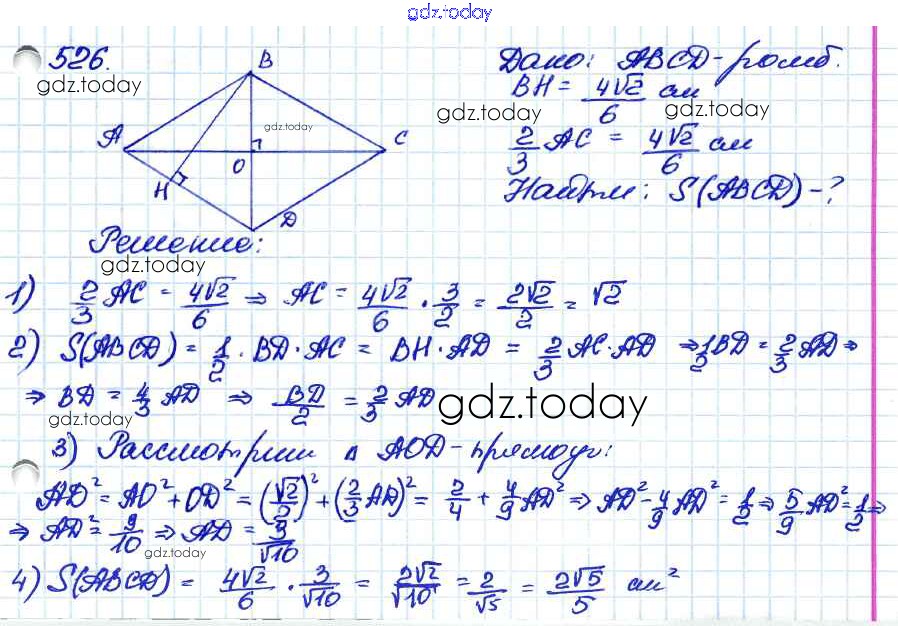 gdz.today
526.
gdz.today
B
A
C
O
H
D
gdz.today
Дано: ABCD - ромб.
BH = 4√2/6 см
gdz.today gdz.today
2/3 AC = 4√2/6 см
Найти: S(ABCD) - ?
Решение:
gdz.today
1) 2/3 AC = 4√2/6 ⇒ AC = 4√2/6 · 3/2 = 2√2/2 = √2
2) S(ABCD) = 1/2 · BD · AC = BH · AD = 2/3 AC · AD ⇒ 1/2 BD = 2/3 AD ⇒
⇒ BD = 4/3 AD ⇒ BD/2 = 2/3 AD
gdz.today gdz.today
3) Рассмотрим Δ AOD - прямоуг:
AD² = AO² + OD² = (√2/2)² + (2/3 AD)² = 2/4 + 4/9 AD² ⇒ AD² - 4/9 AD² = 1/2 ⇒ 5/9 AD² = 1/2 ⇒
⇒ AD² = 9/10 ⇒ AD = 3/√10
gdz.today
4) S(ABCD) = 4√2/6 · 3/√10 = 2√2/√10 = 2/√5 = 2√5/5 см²